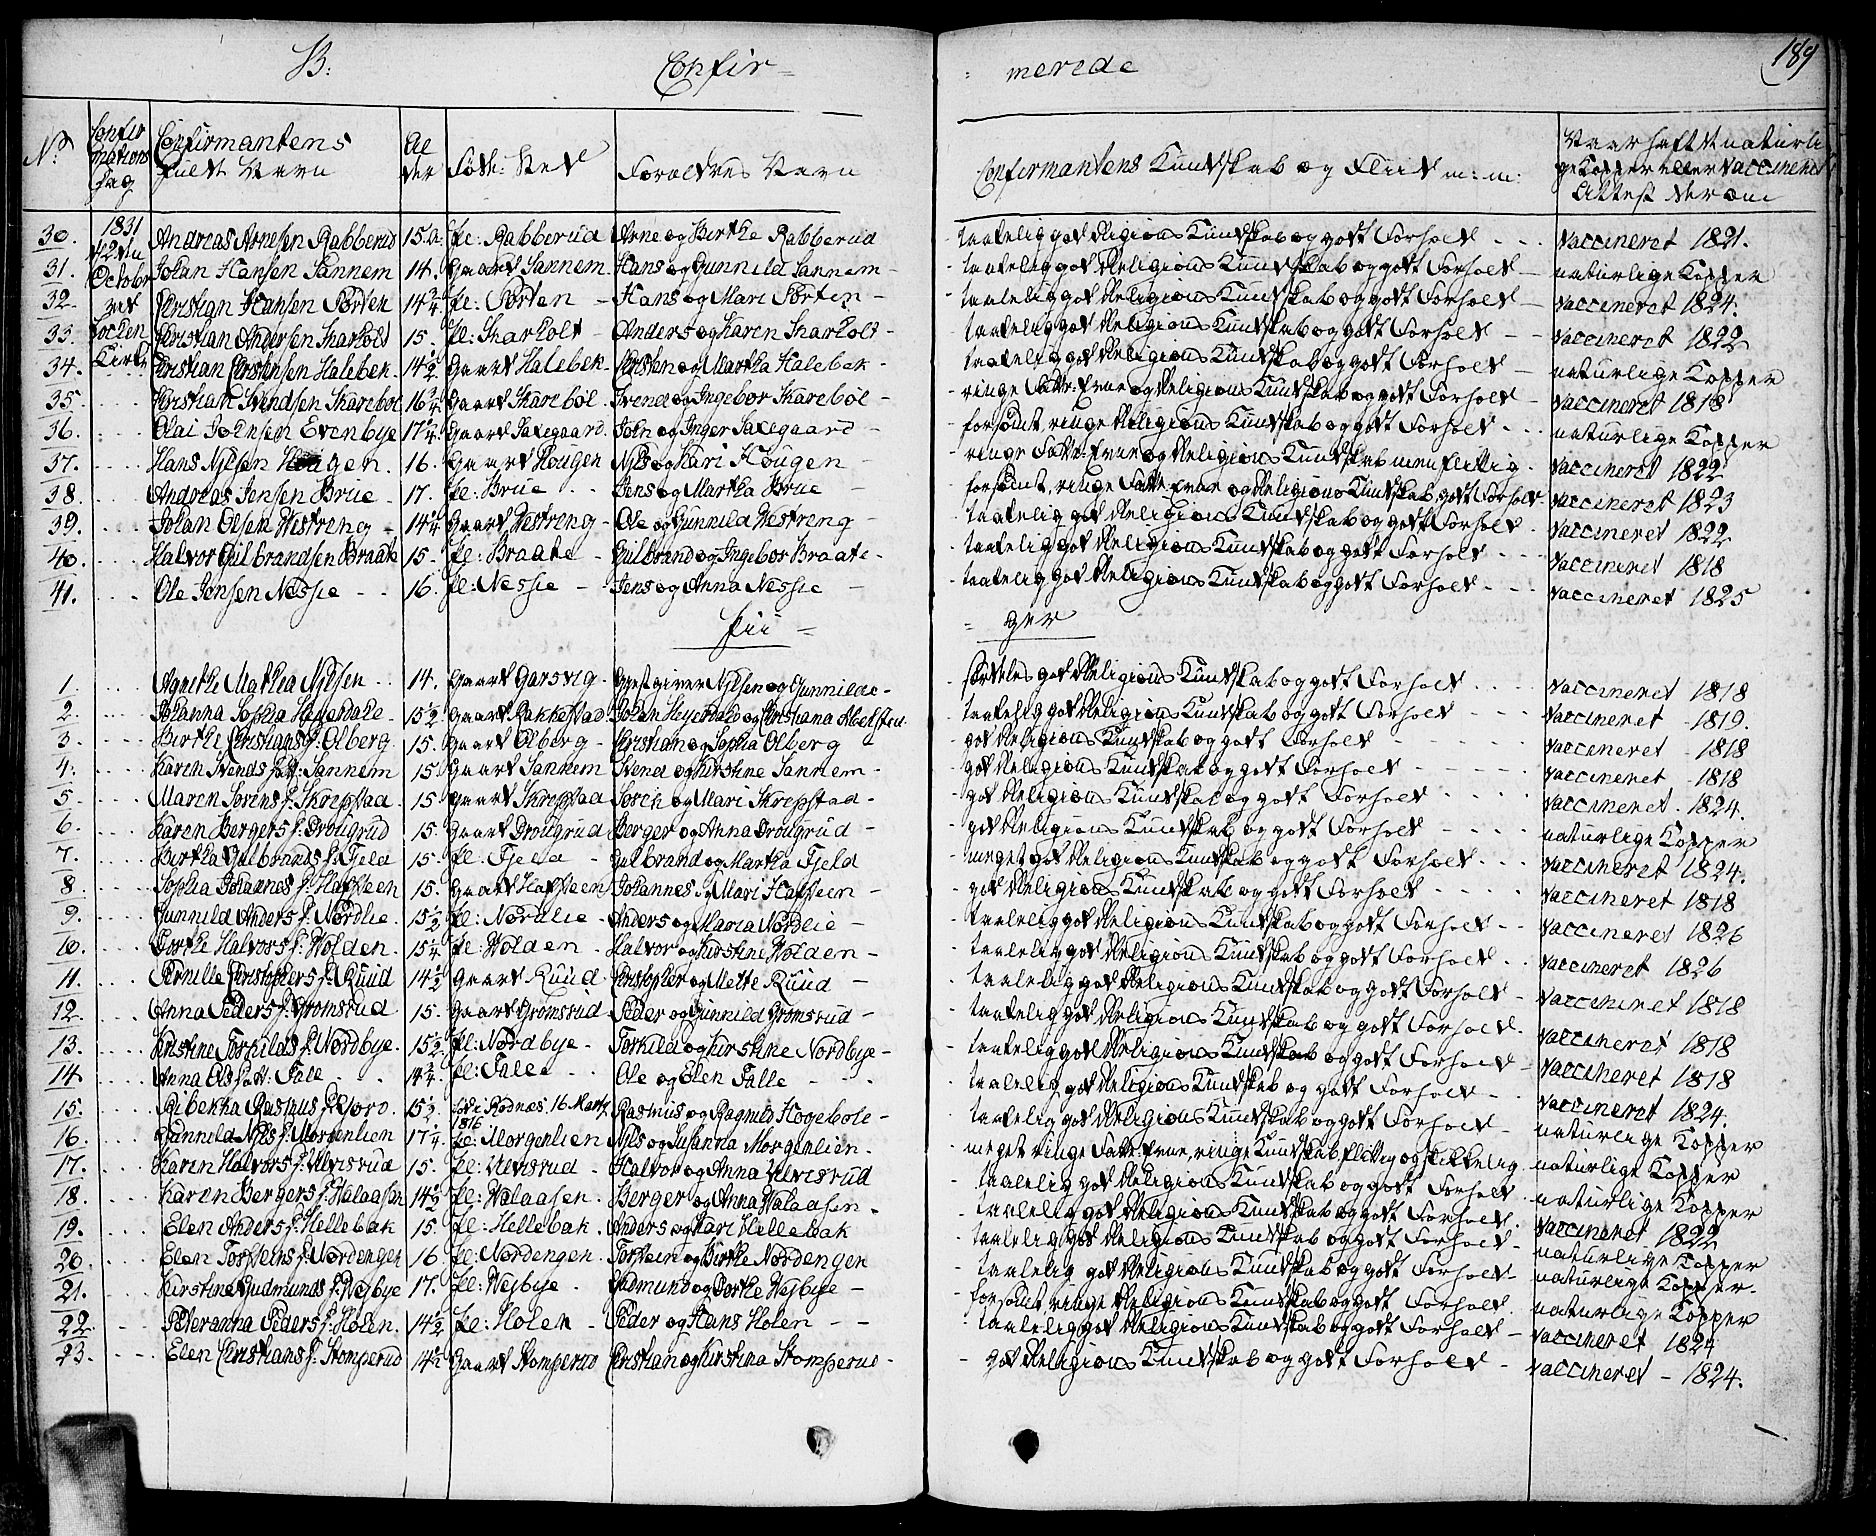 B: Confir= =merede 189
No: Confirmations Dag Confirmantens fulde Navn Alder Føde: Sted Foreldres Navn Confirmantens Kundskab og Fliid m: m: Naar haft de naturlige Kopper eller Vaccineret Attest derom
1831 den 2den October ved Kirke
30. Andreas Arnesen Rabberud 15. a: pl: Rabberud Arne og Birthe Rabberud taalelig god Religions Kundskab og godt Forhold Vaccineret 1821.
31. Johan Hansen Sannem 14. Gaard Sannem. Hans og Gunnild Sannem - taalelig god Religions Kundskab og godt Forhold naturlige Kopper
32. Christian Hansen Sørten 14 3/4 pl: Sørten - Hans og Mari Sørten - taalelig god Religions Kundskab og godt Forhold - Vaccineret 1824.
33. Christian Andersen Skarholt 15. pl: Skarholt - Anders og Karen Skarholt - taalelig god Religions Kundskab og godt Forhold - Vaccineret 1822
34. Christian Christensen Halebek 14 1/2 Gaard Halebek - Christen og Martha Halebek - taalelig god Religions Kundskab og godt Forhold - naturlige Kopper
35. Christian Svendsen Skarebøl 16 3/4 Gaard Skarebøl - Svend og Ingebor Skarebøl - ringe Fatte: Evne og Religions Kundskab og godt Forhold - Vaccineret 1818
36. Olai Johnsen Evenbye 17 3/4 Gaard Saxegaard. John og Inger Saxegaard - forsømt, ringe Religions Kundskab og godt Forhold - naturlige Kopper
37. Hans Nilsen Hougen. 16. Gaard Hougen Nils og Kari Hougen ringe Fatte: Evne og Religions Kundskab men flittig. Vaccineret 1822
38. Andreas Jensen Brue - 17. pl: Brue - Jens og Martha Brue - forsømt, ringe Fatte: Evne og Religions Kundskab, godt Forhold Vaccineret 1823
39. Johan Olsen Westreng - 14 1/4 Gaard Westreng - Ole og Gunnild Westreng - taalelig god Religions Kundskab og godt Forhold. Vaccineret 1822
40. Halvor Gulbrandsen Braate 15. pl: Braate - Gulbrand og Ingebor Braate - taalelig god Religions Kundskab og godt Forhold - Vaccineret 1818
41. Ole Jensen Nessie - 16. pl: Nessie - Jens og Anna Nessie - taalelig god Religions Kundskab og godt Forhold - Vaccineret 1825
Pii = =ger
1. Agnethe Mathea Nilsen 14. Gaard Garsvig - Gjestgiver Nilsen og Gunnilde - særdeles god Religions Kundskab og godt Forhold Vaccineret 1818
2. Johanna Sophia Heyerdahl 15 1/2 Gaard Rakkestad Johan Heyerdahl og Christiana Abelsten taalelig god Religions Kundskab og godt Forhold - Vaccineret - 1819.
3. Birthe Christians f: Olberg 15. Gaard Olberg - Christian og Sophia Olberg - god Religions Kundskab og godt Forhold Vaccineret - 1818
4. Karen Svends dat: Sannem 15. Gaard Sannem Svend og Kirstine Sannem - god Religions Kundskab og godt Forhold Vaccineret - 1818
5. Maren Sørens f: Skrepstad 15 Gaard Skrepstad Søren og Mari Skrepstad - god Religions Kundskab og godt Forhold Vaccineret - 1824.
6. Karen Bergers f: Drougrud 15 Gaard Drougrud Berger og Anna Drougrud - god Religions Kundskab og godt Forhold naturlige Kopper
7. Birtha Gulbrands f: Fjeld 15. pl: Fjeld - Gulbrand og Martha Fjeld meget god Religions Kundskab og godt Forhold Vaccineret 1824.
8. Sophia Johannes f: Hafsteen 15. Gaard Hafsteen Johannes og Mari Hafsteen - god Religions Kundskab og godt Forhold Vaccineret 1818
9. Gunnild Anders f: Nordlie - 15 1/2 pl: Nordlie - Anders og Maria Nordlie - taalelig god Religions Kundskab og godt Forhold - Vaccineret 1826
10. Dorthe Halvors f: Wolden - 15 1/4 pl: Wolden - Halvor og Kirstine Wolden - taalelig god Religions Kundskab og godt Forhold Vaccineret 1826
11. Pernille Christophers f: Ruud 14 1/2 Gaard Ruud - Christopher og Mette Ruud - taalelig god Religions Kundskab og godt Forhold - Vaccineret 1818
12. Anna Peders f: Gromsrud 15. Gaard Gromsrud - Peder og Gunnild Gromsrud - taalelig god Religions Kundskab og godt Forhold. Vaccineret 1818
13. Kirstine Torkilds f: Nordbye 15 1/2 pl: Nordbye - Torkild og Kirstine Nordbye - taalelig god Religions Kundskab og godt Forhold - Vaccineret 1818
14 Anna Ols dat: Falle 14 3/4 pl: Falle - Ole og Elen Falle - taalelig god Religions Kundskab og godt Forhold - Vaccineret 1824.
15. Ribekka Rasmus f: 15 1/2 Fød i Rødnæs 16 Marts 1816 Rasmus og Ragnild Hogebøle - taalelig god Religions Kundskab og godt Forhold - naturlige Kopper
16. Gunnild Nils f: Morgenlien 17 1/4 pl: Morgenlien Nils og Susanna Morgenlien. meget ringe Fatte: Evne, ringe Kundskab flittig og skikkelig. naturlige Kopper
17. Karen Halvors f: Ulvisrud 15. pl: Ulvisrud - Halvor og Anna Ulvisrud taalelig god Religions Kundskab og godt Forhold naturlige Kopper
18. Karen Bergers f: Walaasen 14 1/2 pl: Walaasen. Berger og Anna Walaasen. taalelig god Religions Kundskab og godt Forhold. Vaccineret 1822
19. Elen Anders f: Hellebak 15. pl: Hellebak. Anders og Kari Hellebak taalelig god Religions Kundskab og godt Forhold - naturlige Kopper
20. Elen Torsteins f: Nordengen 16. pl: Nordengen - Torstein og Birthe Nordengen taalelig god Religions Kundskab og godt Forhold - naturlige Kopper -
21. Kirstine Gudmunds f: Wesbye 17. pl: Wesbye - Gudmund og Dorthe Wesbye - forsømt, ringe Religions Kundskab og godt Forhold naturlige Kopper
22. Peteranna Peders f: Holen. 14 1/2 pl: Holen - Peder og Hans Holen - taalelig god Religions Kundskab og godt Forhold - Vaccineret 1824
23. Elen Christians f: Stomperud 14 1/2 Gaard Stomperud Christian og Kirstina Stomperud - god Religions Kundskab og godt Forhold - Vaccineret - 1824.